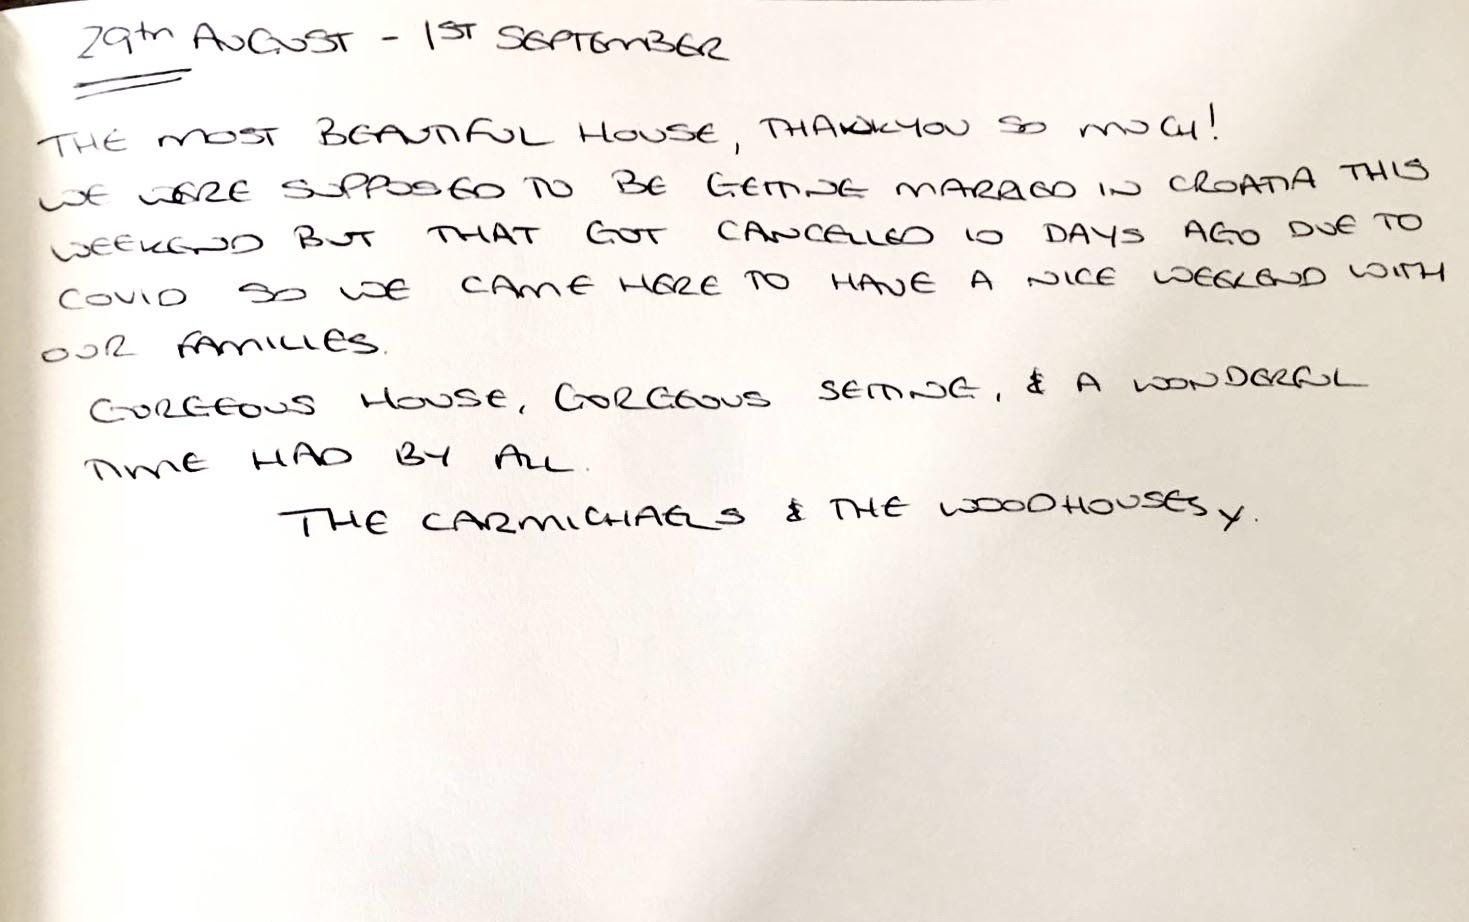 29th AUGUST - 1ST SEPTEMBER
THE MOST BEAUTIFUL HOUSE, THANKYOU SO MUCH!
WE WERE SUPPOSED TO BE GETTING MARRIED IN CROATIA THIS
WEEKEND BUT THAT GOT CANCELLED 10 DAYS AGO DUE TO
COVID SO WE CAME HERE TO HAVE A NICE WEEKEND WITH
OUR FAMILIES.
GORGEOUS HOUSE, GORGEOUS SETTING, & A WONDERFUL
TIME HAD BY ALL.
THE CARMICHAELS & THE WOODHOUSES y.